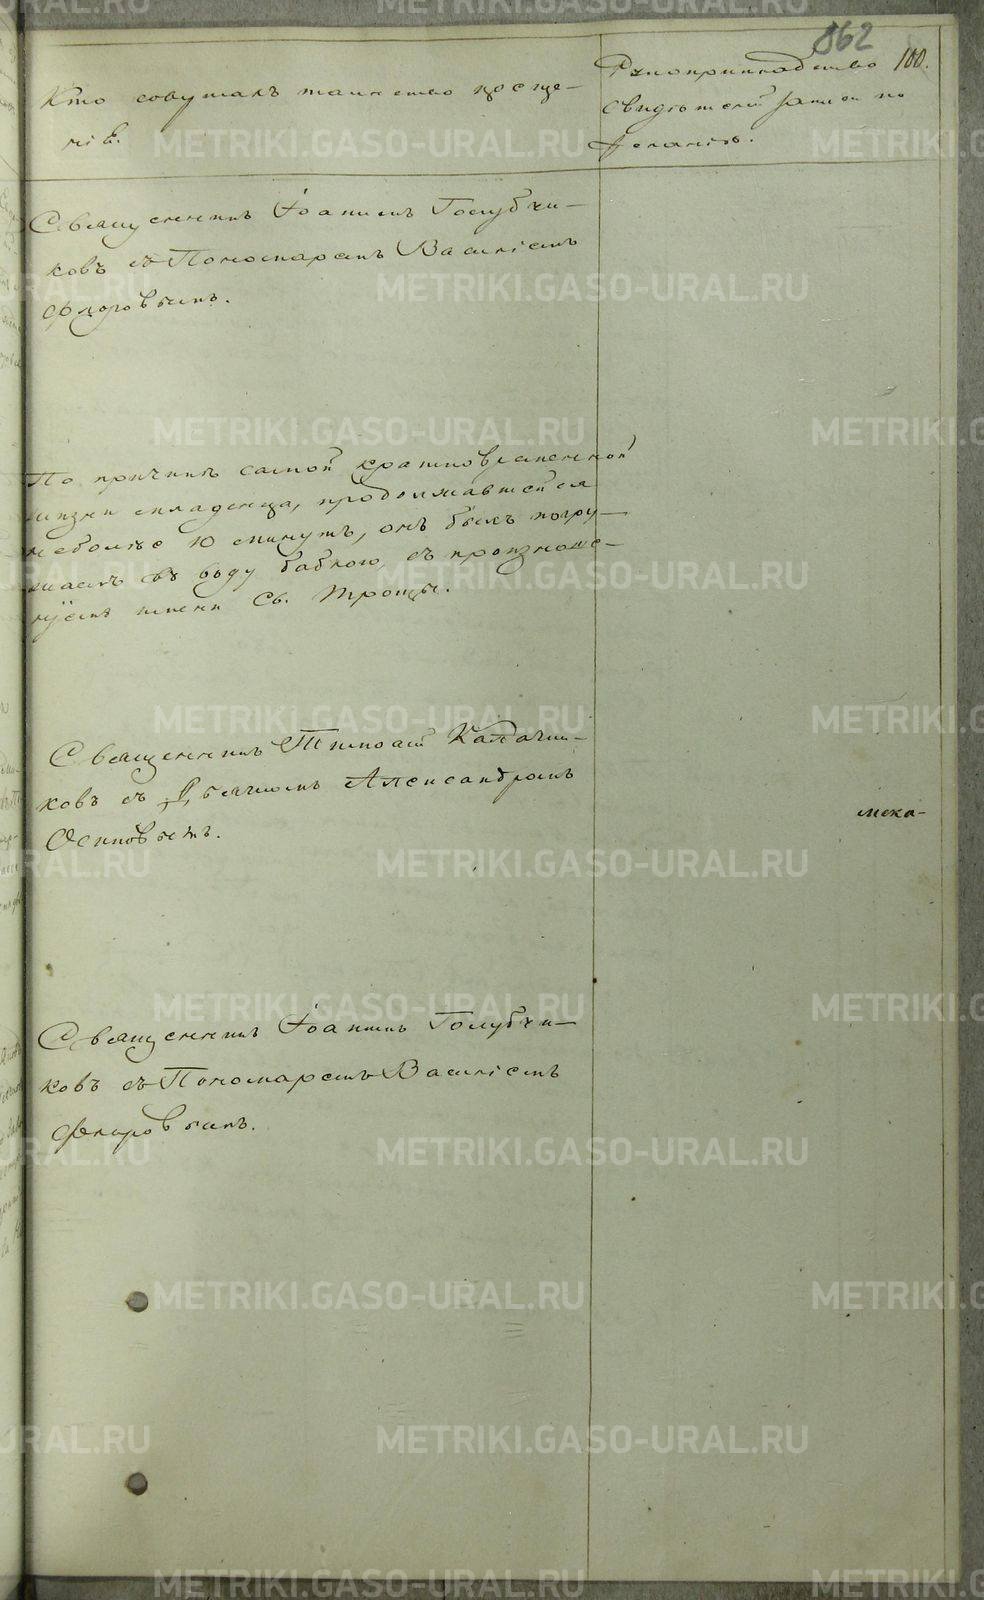 862
100.
Кто совершалъ таинство креще-
нiя.
Рукоприкладство
свидѣтелей записи по
желанiю.
Священникъ Iоаннъ Голубчи-
ковъ съ Пономаремъ Василiемъ
Флоровымъ.
По причинѣ самой кратковременной
жизни младенца, продолжавшейся
неболѣе 10 минутъ, онъ былъ погру-
жаемъ въ воду бабкою, съ произноше-
нiемъ имени Св. Троицы.
Священникъ Тимофей Калачни-
ковъ съ Дьячкомъ Александромъ
Осиповымъ.
мека-
Священникъ Iоаннъ Голубчи-
ковъ съ Пономаремъ Василiемъ
Флоровымъ.
METRIKI.GASO-URAL.RU